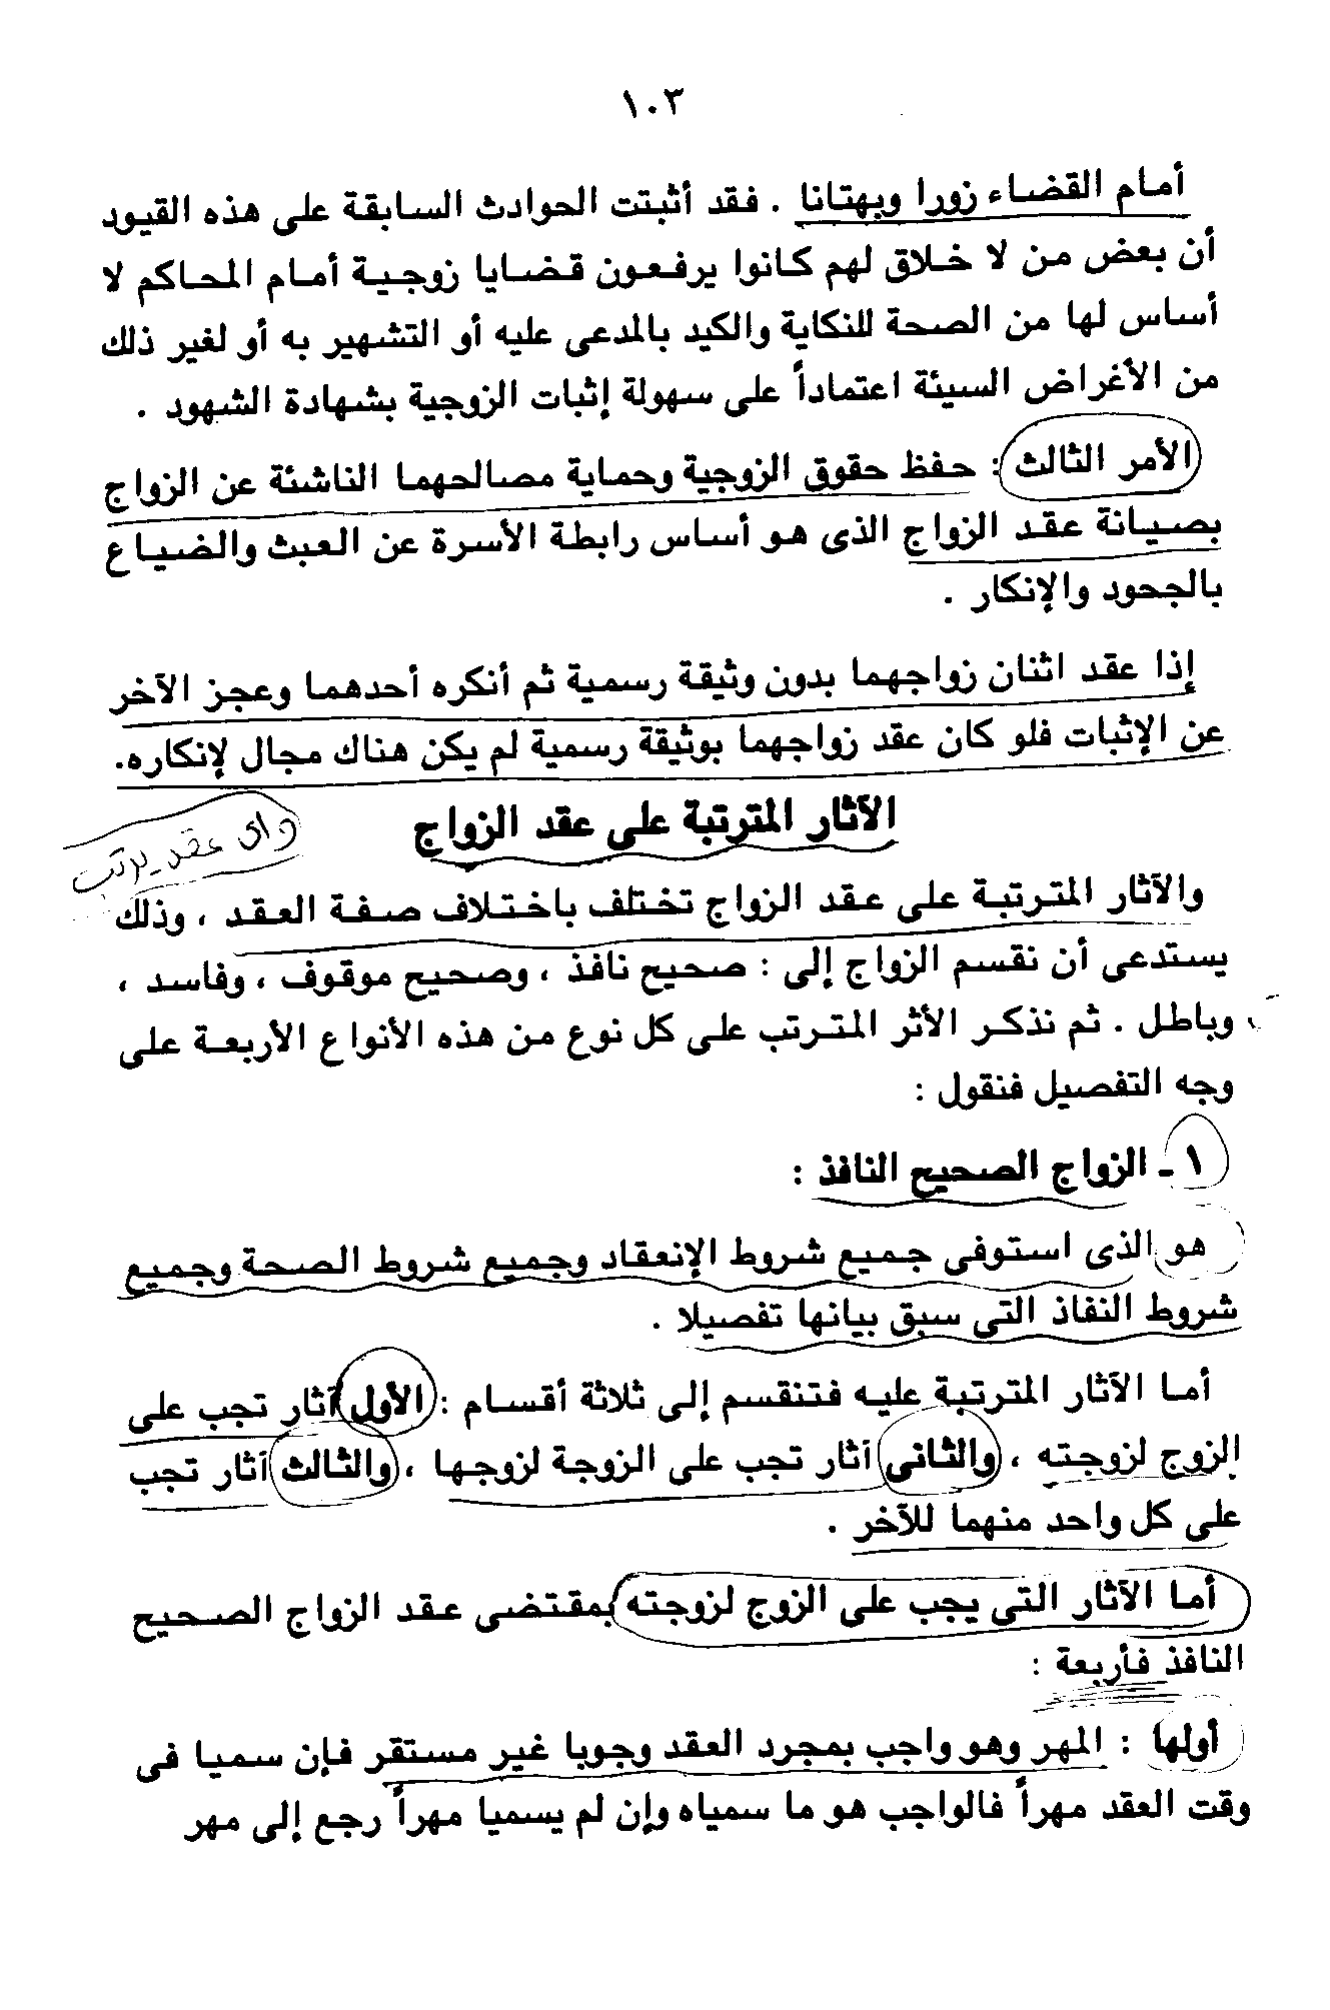 ١٠٣
أمام القضاء زورا وبهتانا . فقد أثبتت الحوادث السابقة على هذه القيود
أن بعض من لا خلاق لهم كانوا يرفعون قضايا زوجية أمام المحاكم لا
أساس لها من الصحة للنكاية والكيد بالمدعى عليه أو التشهير به أو لغير ذلك
من الأغراض السيئة اعتماداً على سهولة إثبات الزوجية بشهادة الشهود .
الأمر الثالث : حفظ حقوق الزوجية وحماية مصالحهما الناشئة عن الزواج
بصيانة عقد الزواج الذى هو أساس رابطة الأسرة عن العبث والضياع
بالجحود والإنكار .
إذا عقد اثنان زواجهما بدون وثيقة رسمية ثم أنكره أحدهما وعجز الآخر
عن الإثبات فلو كان عقد زواجهما بوثيقة رسمية لم يكن هناك مجال لإنكاره.
الآثار المترتبة على عقد الزواج
واى عقد يرتب
والآثار المترتبة على عقد الزواج تختلف باختلاف صفة العقد ، وذلك
يستدعى أن نقسم الزواج إلى : صحيح نافذ ، وصحيح موقوف ، وفاسد ،
وباطل . ثم نذكر الأثر المترتب على كل نوع من هذه الأنواع الأربعة على
وجه التفصيل فنقول :
١ - الزواج الصحيح النافذ :
هو الذى استوفى جميع شروط الإنعقاد وجميع شروط الصحة وجميع
شروط النفاذ التى سبق بيانها تفصيلا .
أما الآثار المترتبة عليه فتنقسم إلى ثلاثة أقسام : الأول آثار تجب على
الزوج لزوجته ، والثانى آثار تجب على الزوجة لزوجها ، والثالث آثار تجب
على كل واحد منهما للآخر .
أما الآثار التى يجب على الزوج لزوجته بمقتضى عقد الزواج الصحيح
النافذ فأربعة :
أولها : المهر وهو واجب بمجرد العقد وجوبا غير مستقر فإن سميا فى
وقت العقد مهراً فالواجب هو ما سمياه وإن لم يسميا مهراً رجع إلى مهر